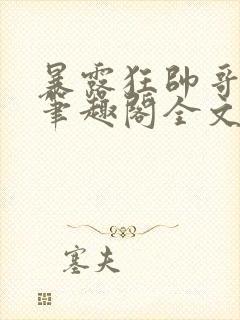 暴露狂帥哥
筆趣閣全文
塞夫